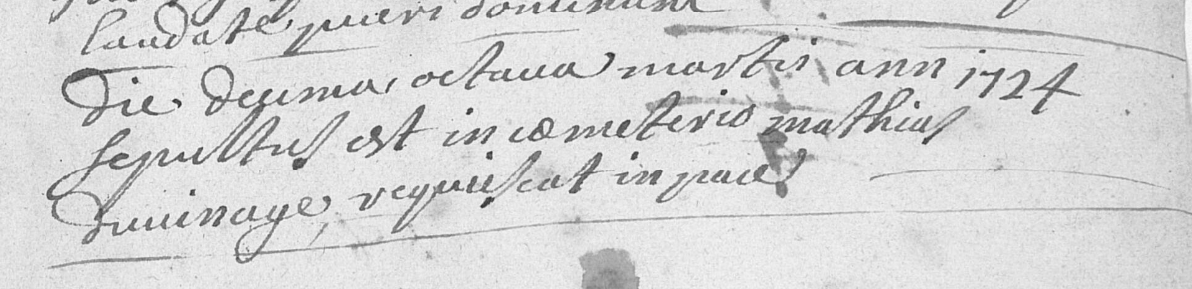 laudate pueri dominum
die decima octava martis ann 1724
sepultus est in cæmeterio mathias
requiescat in pace